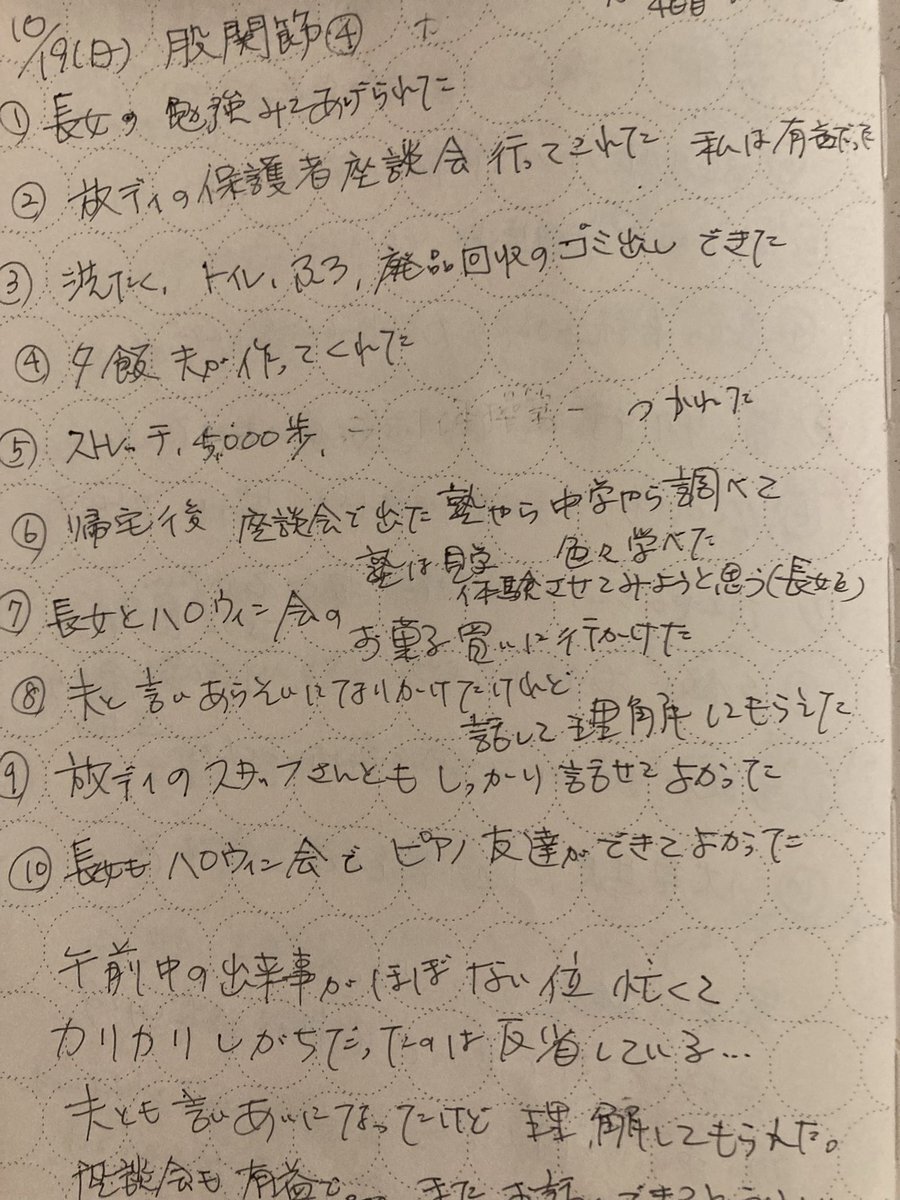 4日目
10/19(日) 股関節④
① 長女の勉強みてあげられた
② 放デイの保護者座談会行ってこれた 私は有益だった
③ 洗たく、トイレ、ふろ、廃品回収のゴミ出しできた
④ 夕飯 夫が作ってくれた
⑤ ストレッチ、5,000歩、 つかれた
⑥ 帰宅後 座談会で出た塾やら中学やら調べて
色々学べた
塾は見学
体験させてみようと思う(長女を)
⑦ 長女とハロウィン会の
お菓子買いに行かけた
⑧ 夫と言いあらそいになりかけたけれど
話して理解してもらえた
⑨ 放デイのスタッフさんともしっかり話せてよかった
⑩ 長女もハロウィン会でピアノ友達ができてよかった
午前中の出来事がほぼない位 忙くて
カリカリしがちだったのは反省している...
夫とも言いあいになったけど理解してもらえた。
座談会も有益で。